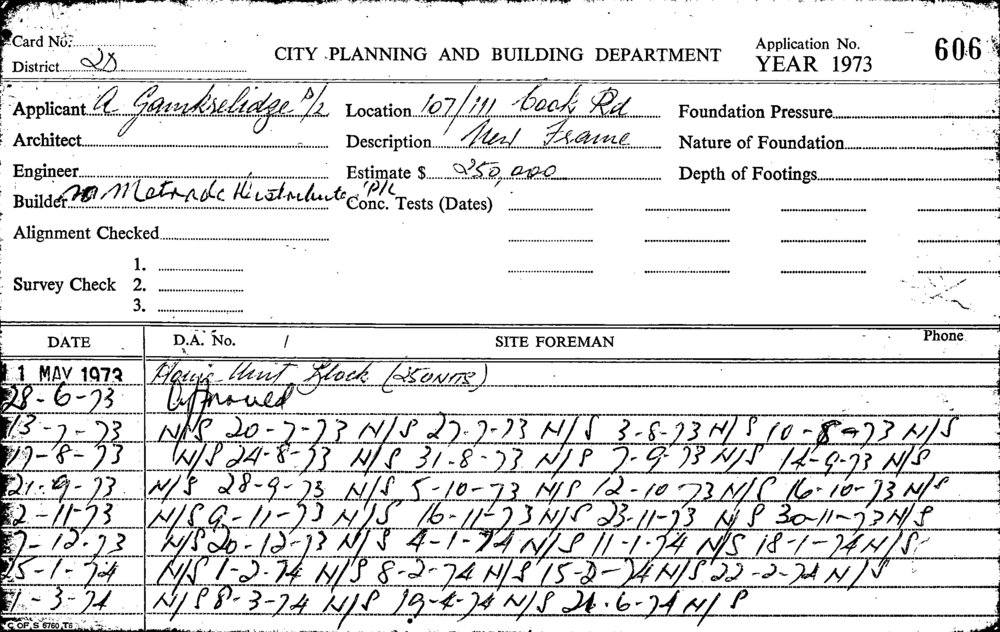 Card No.
Application No.
CITY PLANNING AND BUILDING DEPARTMENT
606
District 2D
YEAR 1973
Applicant A Gamkrelidge P/L Location 107/111 Cook Rd Foundation Pressure
Architect Description New Frame Nature of Foundation
Engineer Estimate $ 250,000 Depth of Footings
Builder Metrade P/L Conc. Tests (Dates)
Alignment Checked
1.
Survey Check 2.
3.
DATE D.A. No. / SITE FOREMAN Phone
1 MAY 1973 Unit Block (25 UNITS)
28-6-73 Approved
13-7-73 N/S 20-7-73 N/S 27-7-73 N/S 3-8-73 N/S 10-8-73 N/S
17-8-73 N/S 24-8-73 N/S 31-8-73 N/S 7-9-73 N/S 14-9-73 N/S
21-9-73 N/S 28-9-73 N/S 5-10-73 N/S 12-10-73 N/S 16-10-73 N/S
2-11-73 N/S 9-11-73 N/S 16-11-73 N/S 23-11-73 N/S 30-11-73 N/S
7-12-73 N/S 20-12-73 N/S 4-1-74 N/S 11-1-74 N/S 18-1-74 N/S
25-1-74 N/S 1-2-74 N/S 8-2-74 N/S 15-2-74 N/S 22-2-74 N/S
1-3-74 N/S 8-3-74 N/S 19-4-74 N/S 21-6-74 N/S
C OF S 6760 T6